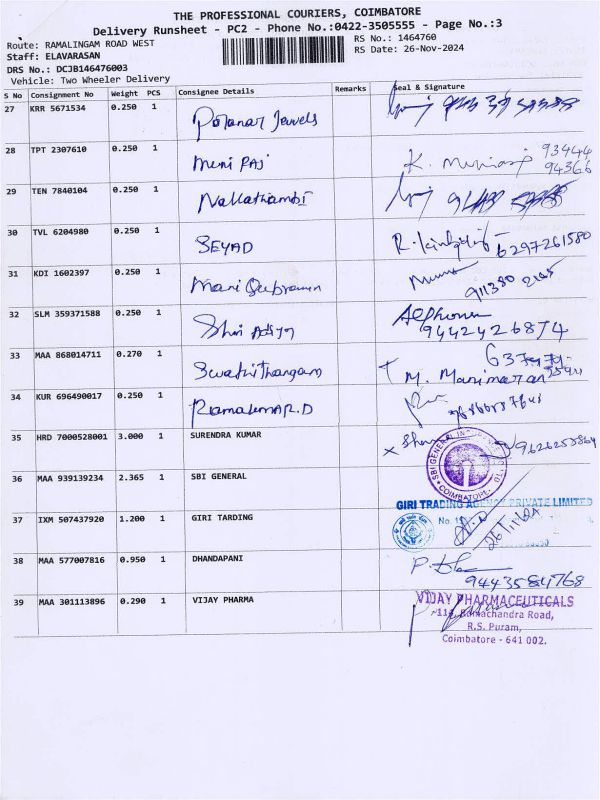 THE PROFESSIONAL COURIERS, COIMBATORE
Delivery Runsheet - PC2 - Phone No.:0422-3505555 - Page No.:3
Route: RAMALINGAM ROAD WEST RS No.: 1464760
Staff: ELAVARASAN RS Date: 26-Nov-2024
DRS No.: DCJB146476003
Vehicle: Two Wheeler Delivery
S No Consignment No Weight PCS Consignee Details Remarks Seal & Signature
27 KRR 5671534 0.250 1 Potanar Jewels
28 TPT 2307610 0.250 1 muni RAJ K. 93444
94366
29 TEN 7840104 0.250 1 Nallathambi
30 TVL 6204980 0.250 1 SEYAD 6297261580
31 KDI 1602397 0.250 1 mani
32 SLM 359371588 0.250 1 Shri Alphonse
9442426874
33 MAA 868014711 0.270 1 Swathi Thangam M. Manimaran
34 KUR 696490017 0.250 1 Ramakumar.D
35 HRD 7000528001 3.000 1 SURENDRA KUMAR
36 MAA 939139234 2.365 1 SBI GENERAL
SBI GENERAL COIMBATORE
37 IXM 507437920 1.200 1 GIRI TARDING
GIRI TRADING AGENCY PRIVATE LIMITED
38 MAA 577007816 0.950 1 DHANDAPANI
9443584768
39 MAA 301113896 0.290 1 VIJAY PHARMA
VIJAY PHARMACEUTICALS
Ramachandra Road,
R.S. Puram,
Coimbatore - 641 002.